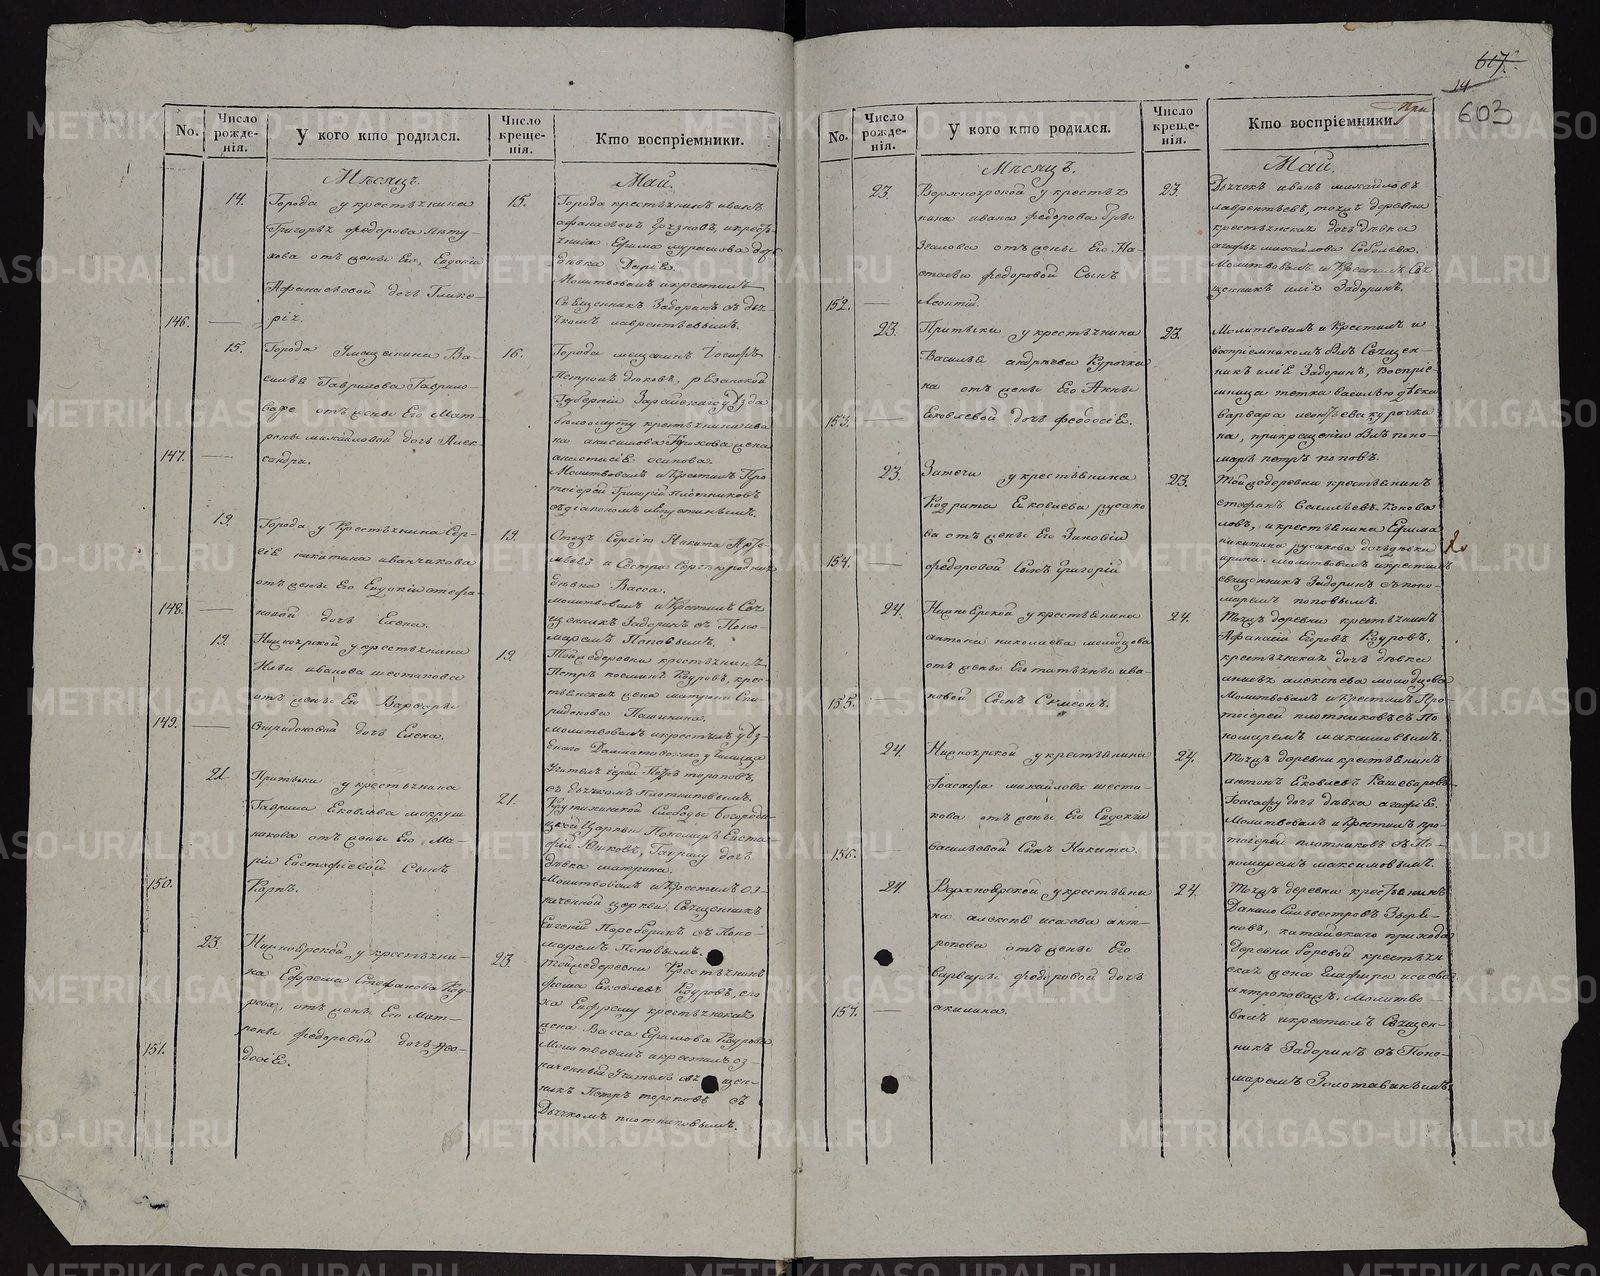 617.
14
603
No.
Число рожде-нія.
У кого кто родился.
Число креще-нія.
Кто воспріемники.
Мѣсяцъ.
Май.
14.
Города у крестьянина
Григорья федорова
отъ жены Его, Евдокіи
Афанасьевой дочь Глике-
146. — рія.
15.
Города крестьянинъ иванъ
дѣвка Дарья.
Молитвовалъ и крестилъ
Священникъ Задоринъ съ дья-
чкомъ лаврентьевымъ.
15.
Города Умещанина Ва-
силья Гаврилова Гаврило-
отъ жены Его Мат-
рены михайловой дочь Алек-
147. — сандра.
16.
Города мещанинъ Іосифъ
Губерніи Зарайскаго уѣзда
анастасія осипова.
Молитвовалъ и Крестилъ Про
тоіерей Григорій Плотниковъ
19.
Города у Крестьянина Сер-
гія никитина иванчикова
отъ жены Его Евдокіи стефа-
148. — новой дочь Елена.
19.
Отецъ Сергію Никита
и Сестра
дѣвка Васса.
молитвовалъ и Крестилъ Свя
щенникъ Задоринъ съ Поно-
маремъ Поповымъ.
19.
Нижноярской у крестьянина
Ильи иванова шестакова
отъ жены Ево Варвары
149. — спиридоновой дочь Елена.
19.
Тойже деревни крестьянинъ
Петръ козминъ Кауровъ, крес-
тьянская жена матрона Спи-
ридонова Пашнина.
молитвовалъ и крестилъ уѣз
днаго Далматовскаго училища
Учитель іерей Петръ тороповъ,
съ дьячкомъ плотниковымъ.
21
Притыки у крестьянина
Гаврила Ековлева мокруш
никова отъ жены Его, Ма-
ріи Евстафіевой Сынъ
150. Карпъ.
21.
Крутихинской Слободы Богороди
цкой Церкви Пономарь Евста-
фій Юшковъ, Гаврилу дочь
дѣвка матрона.
Молитвовалъ и Крестилъ оз-
наченной церкви Священникъ
Евгеній съ Поно-
маремъ Поповымъ.
23.
Нижноярской у крестьяни-
на Ефрема Стефанова Кау
рова, отъ жены Его Мат-
рены федоровой дочь Фео-
151. досія.
23.
тойже деревни Крестьянинъ
фома Ековлевъ Кауровъ, его
жа Ефрему крестьянская
жена Васса Ефимова Каурова
Молитвовалъ и крестилъ оз-
наченный Учитель священ-
никъ Петръ тороповъ съ
Дьячкомъ плотниковымъ.
No.
Число рожде-нія.
У кого кто родился.
Число креще-нія.
Кто воспріемники.
при
Мѣсяцъ.
Май.
23.
Верхноярской у крестья
нина ивана федорова
отъ жены Его На-
стасьи федоровой Сынъ
152. — Леонтій.
23.
Дьячекъ иванъ михайловъ
лаврентьевъ, тояжъ деревни
крестьянская дочь дѣвка
агафья михайлова Соболева.
Молитвовалъ и Крестилъ Свя
щенникъ илія Задоринъ.
23.
Притыки у крестьянина
Василья андреева Курочки
на отъ жены Его Анны
153. — Ековлевой дочь феодосія.
23.
Молитвовалъ и Крестилъ и
воспріемникомъ былъ Священ-
никъ илія Задоринъ, воспріе-
мница тетка василью дѣвка
варвара леонтьева курочки
на, прикрещеніи былъ поно-
марь петръ поповъ.
23.
Затечи у крестьянина
Кодрата Ековлева русако
ва отъ жены Его Зиновіи
154. — федоровой Сынъ Григорій
23.
Тойже деревни крестьянинъ
стефанъ Савильевъ Конова
ловъ, и крестьянина Ефима
никитина русакова дочь дѣвка
ирина. молитвовалъ и крестилъ
священникъ Задоринъ съ поно-
маремъ поповымъ.
24.
Нижноярской у крестьянина
антона николаева молодцова
отъ жены Его татьяны ива-
155. — новой Сынъ Сумеонъ.
24.
Тояжъ деревни крестьянинъ
Афанасій Егоровъ Кауровъ,
крестьянская дочь дѣвка
алексѣева молодцова
Молитвовалъ и крестилъ Про-
тоіерей плотниковъ съ По
номаремъ максимовымъ.
24.
Нижноярской у крестьянина
Іоасафа михайлова шеста-
кова отъ жены Его Евдокіи
156. — васильевой Сынъ Никита.
24.
Тояжъ деревни крестьянинъ
антонъ Ековлевъ Кашеваровъ
Іоасафу дочь дѣвка агафія.
Молитвовалъ и Крестилъ про-
тоіерей плотниковъ съ По-
номаремъ максимовымъ.
24.
Верхноярской у крестьяни
на алексѣя исаева ант-
ропова отъ жены Его
варвары федоровой дочь
157. — акилина.
24.
Тояжъ деревни крестьянинъ
Данило Сильвестровъ Зыря-
новъ, катайскаго прихода
деревни боровой крестьян
ская жена Глафира исаева
антроповыхъ. Молитво-
валъ и крестилъ Священ-
никъ Задоринъ съ Поно-
маремъ Золотавинымъ.
METRIKI.GASO-URAL.RU